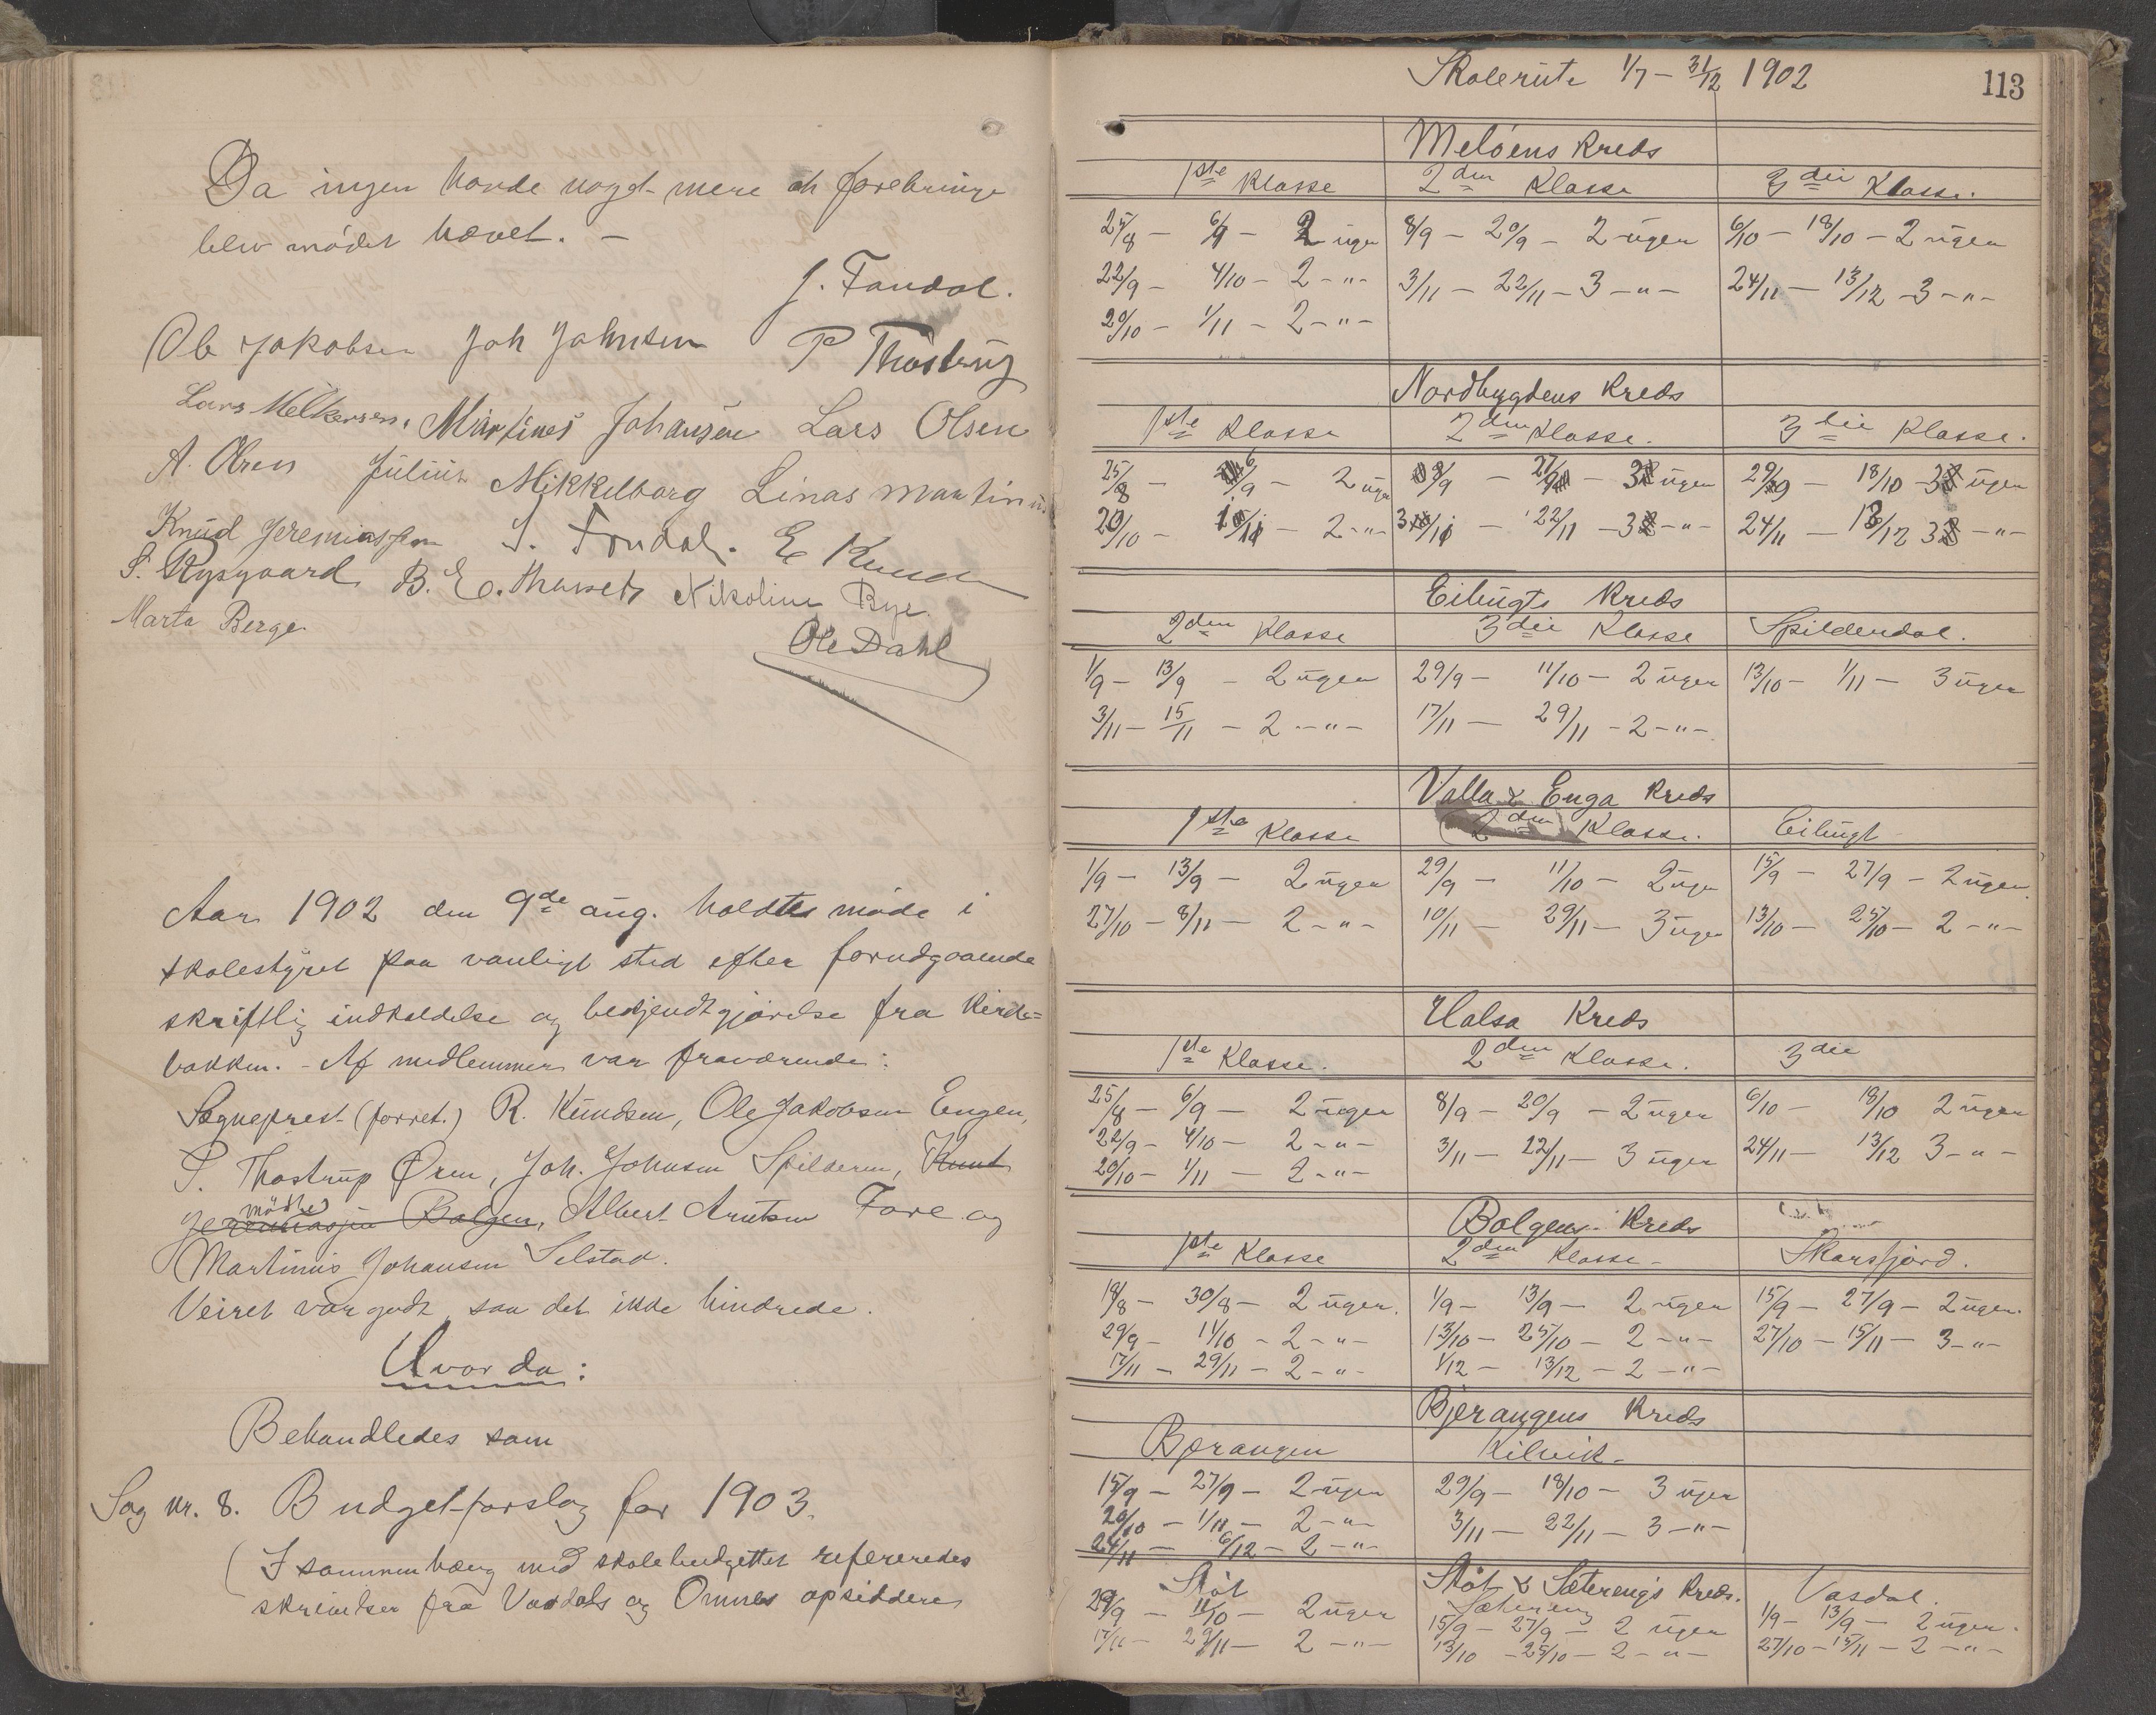 Da ingen havde noget mere at forebringe
blev mødet hævet. –
J. Fondal.
Ole Jakobsen Joh Johnsen P Thostrup
Lars Melkersen, Martinus Johansen Lars Olsen
A. Olsen Julius Mikkelborg Linas Martinus
Knud Jeremiassen S. Fondal. E
S. Rysgaard B. E. Nikoline Bye.
Marta Berge
Ole Dahl
Aar 1902 den 9de aug. holdtes møde i
skolestyret paa vanligt sted efter forudgaaende
skriftlig indkaldelse og bekjendtgjørelse fra kirke=
bakken. – Af medlemmer var fraværende:
Sogneprest (forret.) R. Knudsen, Ole Jakobsen Engen,
P. Thostrup Ørn, Joh. Johnsen Spilderen, Knut
mødte
Jeremiassen Bolgen, Albert Arntsen Fore og
Martinus Johansen Selstad.
Veiret var godt, saa det ikke hindrede.
Hvor da:
Behandledes som
Sag nr. 8. Budgetforslag for 1903.
(I sammenhæng med skolebudgettet refereredes
skrivelser fra Vasdals og Ornes opsiddere
Skolerute 1/7 – 31/12 1902
113
Meløens Kreds
1ste Klasse 2den Klasse 3die Klasse.
25/8 – 6/9 – 2 uger 8/9 – 20/9 – 2 uger 6/10 – 18/10 – 2 uger
22/9 – 4/10 – 2 – " – 3/11 – 22/11 – 3 – " – 24/11 – 13/12 – 3 – " –
20/10 – 1/11 – 2 – " –
Nordbygdens Kreds
1ste Klasse 2den Klasse. 3die Klasse.
25/8 – 6/9 – 2 uger 8/9 – 27/9 – 3 uger 29/9 – 18/10 – 3 uger
20/10 – 1/11 – 2 – " – 3/11 – 22/11 – 3 – " – 24/11 – 13/12 3 – " –
Eilugts Kreds
2den Klasse 3die Klasse Spilderdal.
1/9 – 13/9 – 2 uger 29/9 – 11/10 – 2 uger 13/10 – 1/11 – 3 uger
3/11 – 15/11 – 2 – " – 17/11 – 29/11 – 2 – " –
Valla & Enga Kreds
1ste Klasse 2den Klasse. Eilugt
1/9 – 13/9 – 2 uger 29/9 – 11/10 – 2 uger 15/9 – 27/9 – 2 uger
27/10 – 8/11 – 2 – " – 10/11 – 29/11 – 3 uger 13/10 – 25/10 – 2 – " –
Halsa Kreds
1ste Klasse. 2den Klasse. 3die
25/8 – 6/9 – 2 uger 8/9 – 20/9 – 2 uger 6/10 – 18/10 2 uger
22/9 – 4/10 – 2 – " – 3/11 – 22/11 – 3 uger 24/11 – 13/12 3 – " –
20/10 – 1/11 – 2 – " –
Bolgens Kreds
1ste Klasse 2den Klasse – Skarsfjord.
18/8 – 30/8 – 2 uger. 1/9 – 13/9 – 2 uger 15/9 – 27/9 – 2 uger.
29/9 – 11/10 – 2 – " – 13/10 – 25/10 – 2 – " – 27/10 – 15/11 – 3 – " –
17/11 – 29/11 – 2 – " – 1/12 – 13/12 – 2 – " –
Bjerangens Kreds
Bjerangen Kilvik –
15/9 – 27/9 – 2 uger 29/9 – 18/10 – 3 uger
20/10 – 1/11 – 2 – " – 3/11 – 22/11 – 3 – " –
24/11 – 6/12 – 2 – " –
Støt & Sæterengs Kreds.
Støt Sætereng Vasdal.
29/9 – 11/10 – 2 uger 15/9 – 27/9 – 2 uger 1/9 – 13/9 – 2 uger.
17/11 – 29/11 – 2 – " – 13/10 – 25/10 – 2 – " – 27/10 – 15/11 – 2 – " –